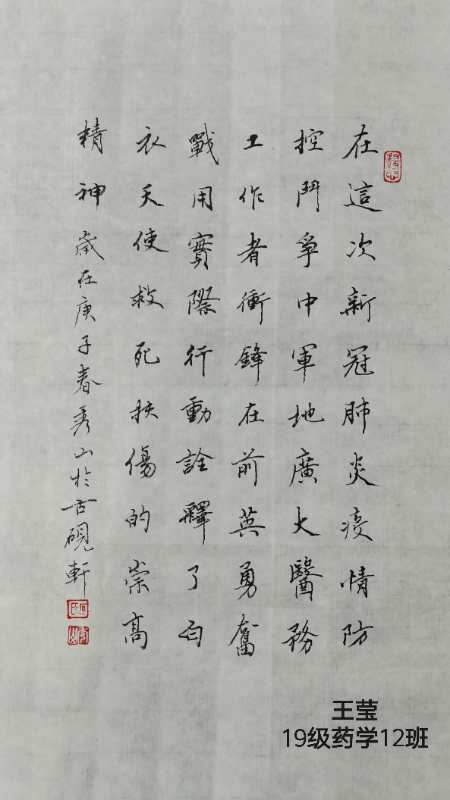 在這次新冠肺炎疫情防
控鬥爭中軍地廣大醫務
工作者衝鋒在前英勇奮
戰用實際行動詮釋了白
衣天使救死扶傷的崇高
精神 歲在庚子春秀山於古硯軒
王莹
19级药学12班